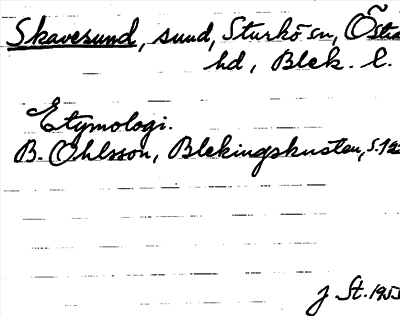 Skavesund, sund, Sturkö sn, Östra
hd, Blek. l.
Etymologi.
B. Ohlsson, Blekingskusten, s.
J. St. 1953